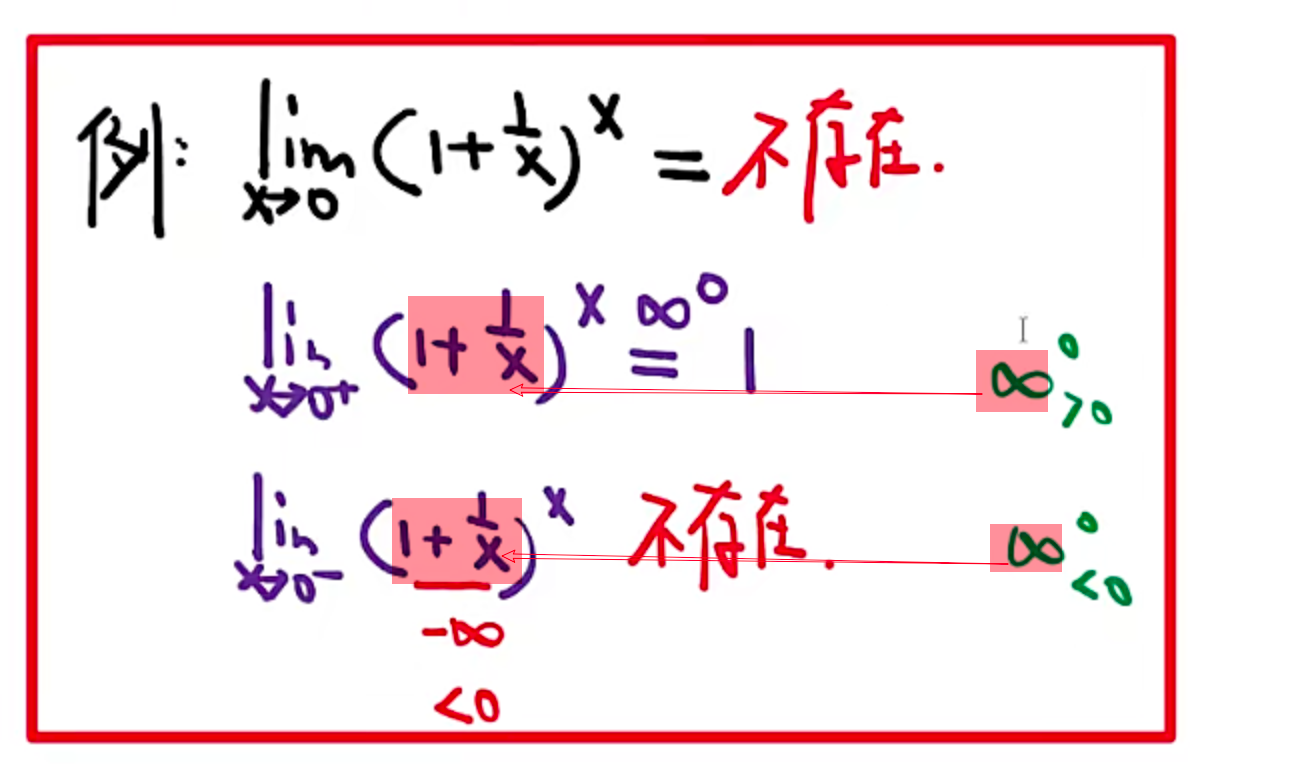 例: lim x→0 (1+1/x)^x = 不存在.
lim x→0+ (1+1/x)^x ∞^0 = 1 ∞^0 >0
lim x→0− (1+1/x)^x 不存在. ∞^0 <0
-∞
<0